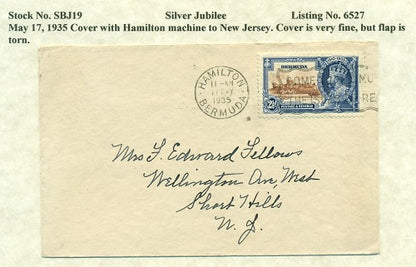 Stock No. SBJ19 Silver Jubilee Listing No. 6527
May 17, 1935 Cover with Hamilton machine to New Jersey. Cover is very fine, but flap is
torn.
HAMILTON
11 - AM
17 MY
1935
BERMUDA
BERMUDA
Mrs F. Edward Fellows
Wellington Av, West
Short Hills
N. J.